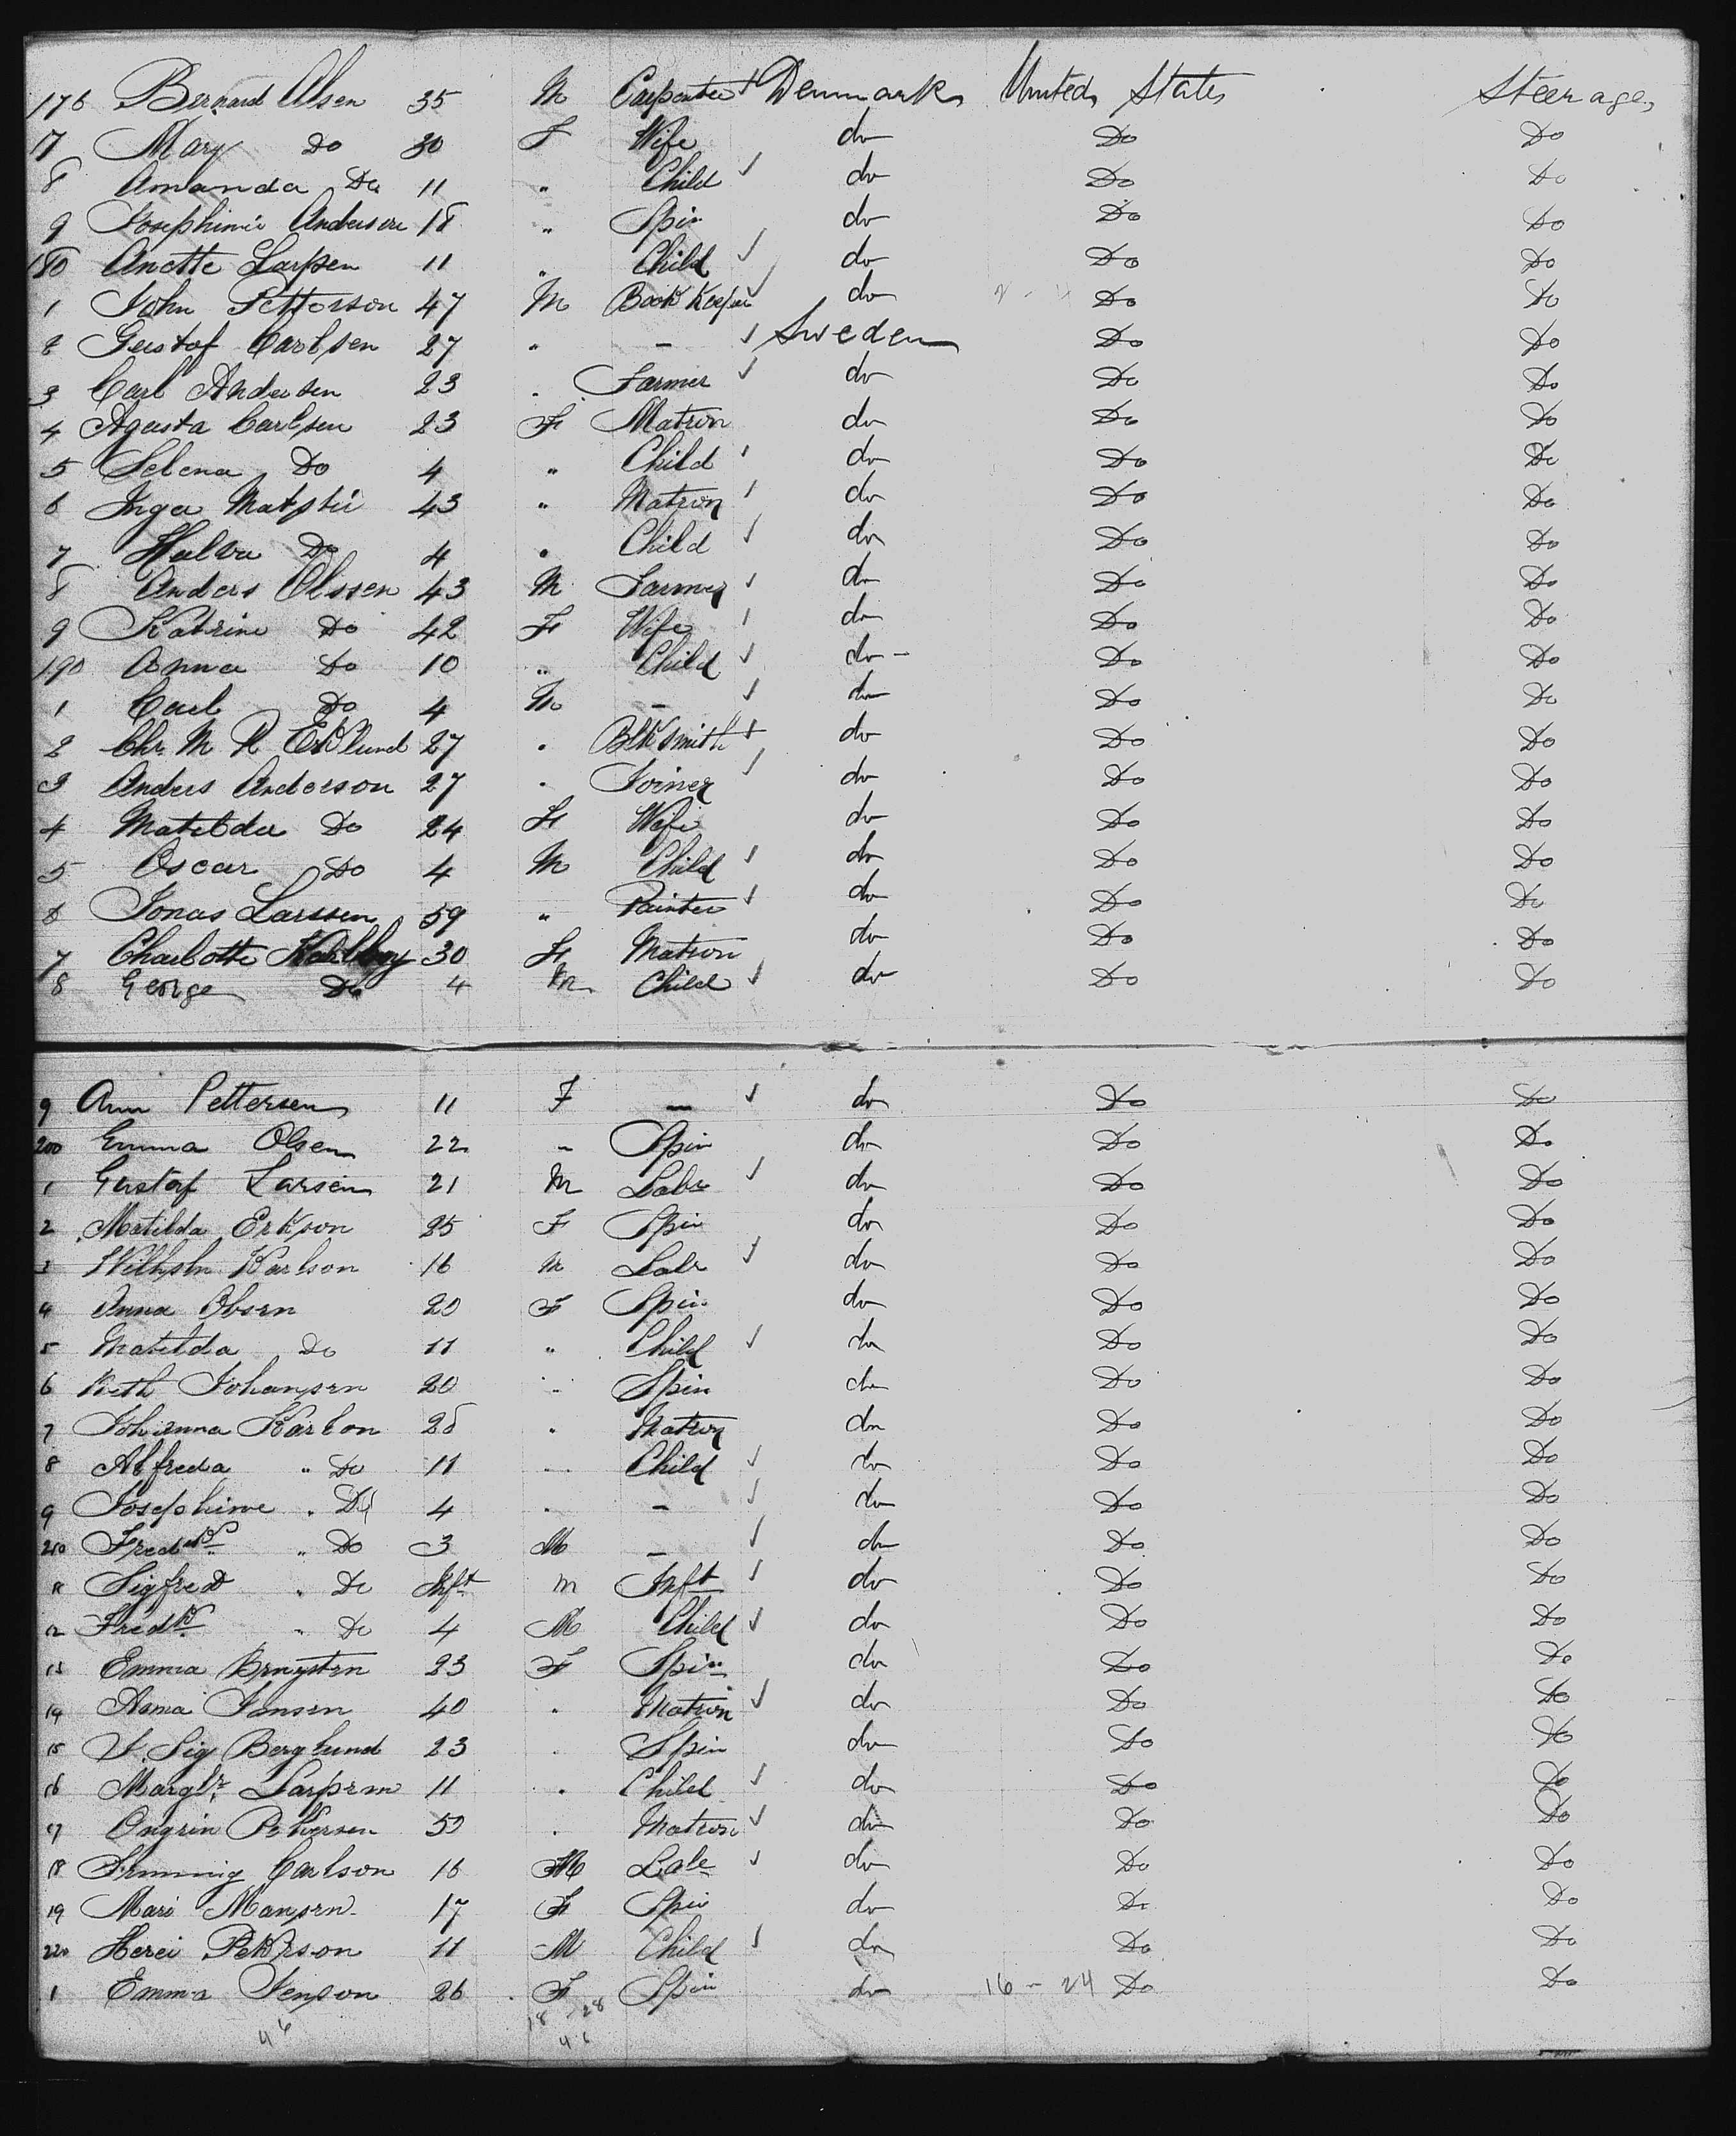 176 Bernard Olsen 35 M Carpenter Denmark United States Steerage
7 Mary Do 30 F Wife do Do Do
8 Amanda Do 11 " Child ✓ do Do Do
9 Josephine Anderson 18 " Spin do Do Do
180 Anette Larssen 11 " Child ✓ do Do Do
1 John Petterson 47 M Book Keeper ✓ do Do Do
2 Gustof Carlsen 27 " - ✓ Sweden Do Do
3 Carl Andersen 23 . Farmer ✓ do Do Do
4 Agusta Carlsen 23 F Matron do Do Do
5 Selena Do 4 " Child do Do Do
6 Inga 43 " Matron do Do Do
7 Do 4 " Child ✓ do Do Do
8 Anders Olssen 43 M Farmer ✓ do Do Do
9 Katrine Do 42 F Wife do Do Do
190 Anna Do 10 " Child ✓ do - Do Do
1 Carl Do 4 M - ✓ do Do Do
2 Chr. M R Eklund 27 . Blk Smith do Do Do
3 Anders Anderson 27 . Joiner ✓ do Do Do
4 Matilda Do 24 F Wife do Do Do
5 Oscar Do 4 M Child ✓ do Do Do
6 Jonas Larssen 59 " Painter ✓ do Do Do
7 Charlotte 30 F Matron do Do Do
8 George Do 4 M Child ✓ do Do Do
9 Ann Pettersen 11 F - ✓ do Do Do
200 Emma Olsen 22 " Spin do Do Do
1 Gustaf Larsen 21 M Labr ✓ do Do Do
2 Matilda Erkson 25 F Spin do Do Do
3 Karlson 16 M Labr ✓ do Do Do
4 Anna Olsen 20 F Spin do Do Do
5 Matilda Do 11 " Child ✓ do Do Do
6 Johansen 20 " Spin do Do Do
7 Johanna Karlson 28 . Matron do Do Do
8 Alfreda " Do 11 " Child ✓ do Do Do
9 Josephine . Do 4 . - ✓ do Do Do
210 Fredk " Do 3 M - ✓ do Do Do
11 Sigfred . Do Inft M Inft ✓ do Do Do
12 Fredk " Do 4 M Child ✓ do Do Do
13 Emma 23 F Spin do Do Do
14 Jansen 40 . Matron ✓ do Do Do
15 Sig Berglund 23 . Spin do Do Do
16 Margtr. Larsen 11 . Child ✓ do Do Do
17 50 . Matron ✓ do Do Do
18 Carlson 16 M Labr ✓ do Do Do
19 Mari Mansen 17 F Spin do Do Do
220 Peterson 11 M Child ✓ do Do Do
1 Emma Jenson 26 F Spin do 16 - 24 Do Do
46 18 - 28
46